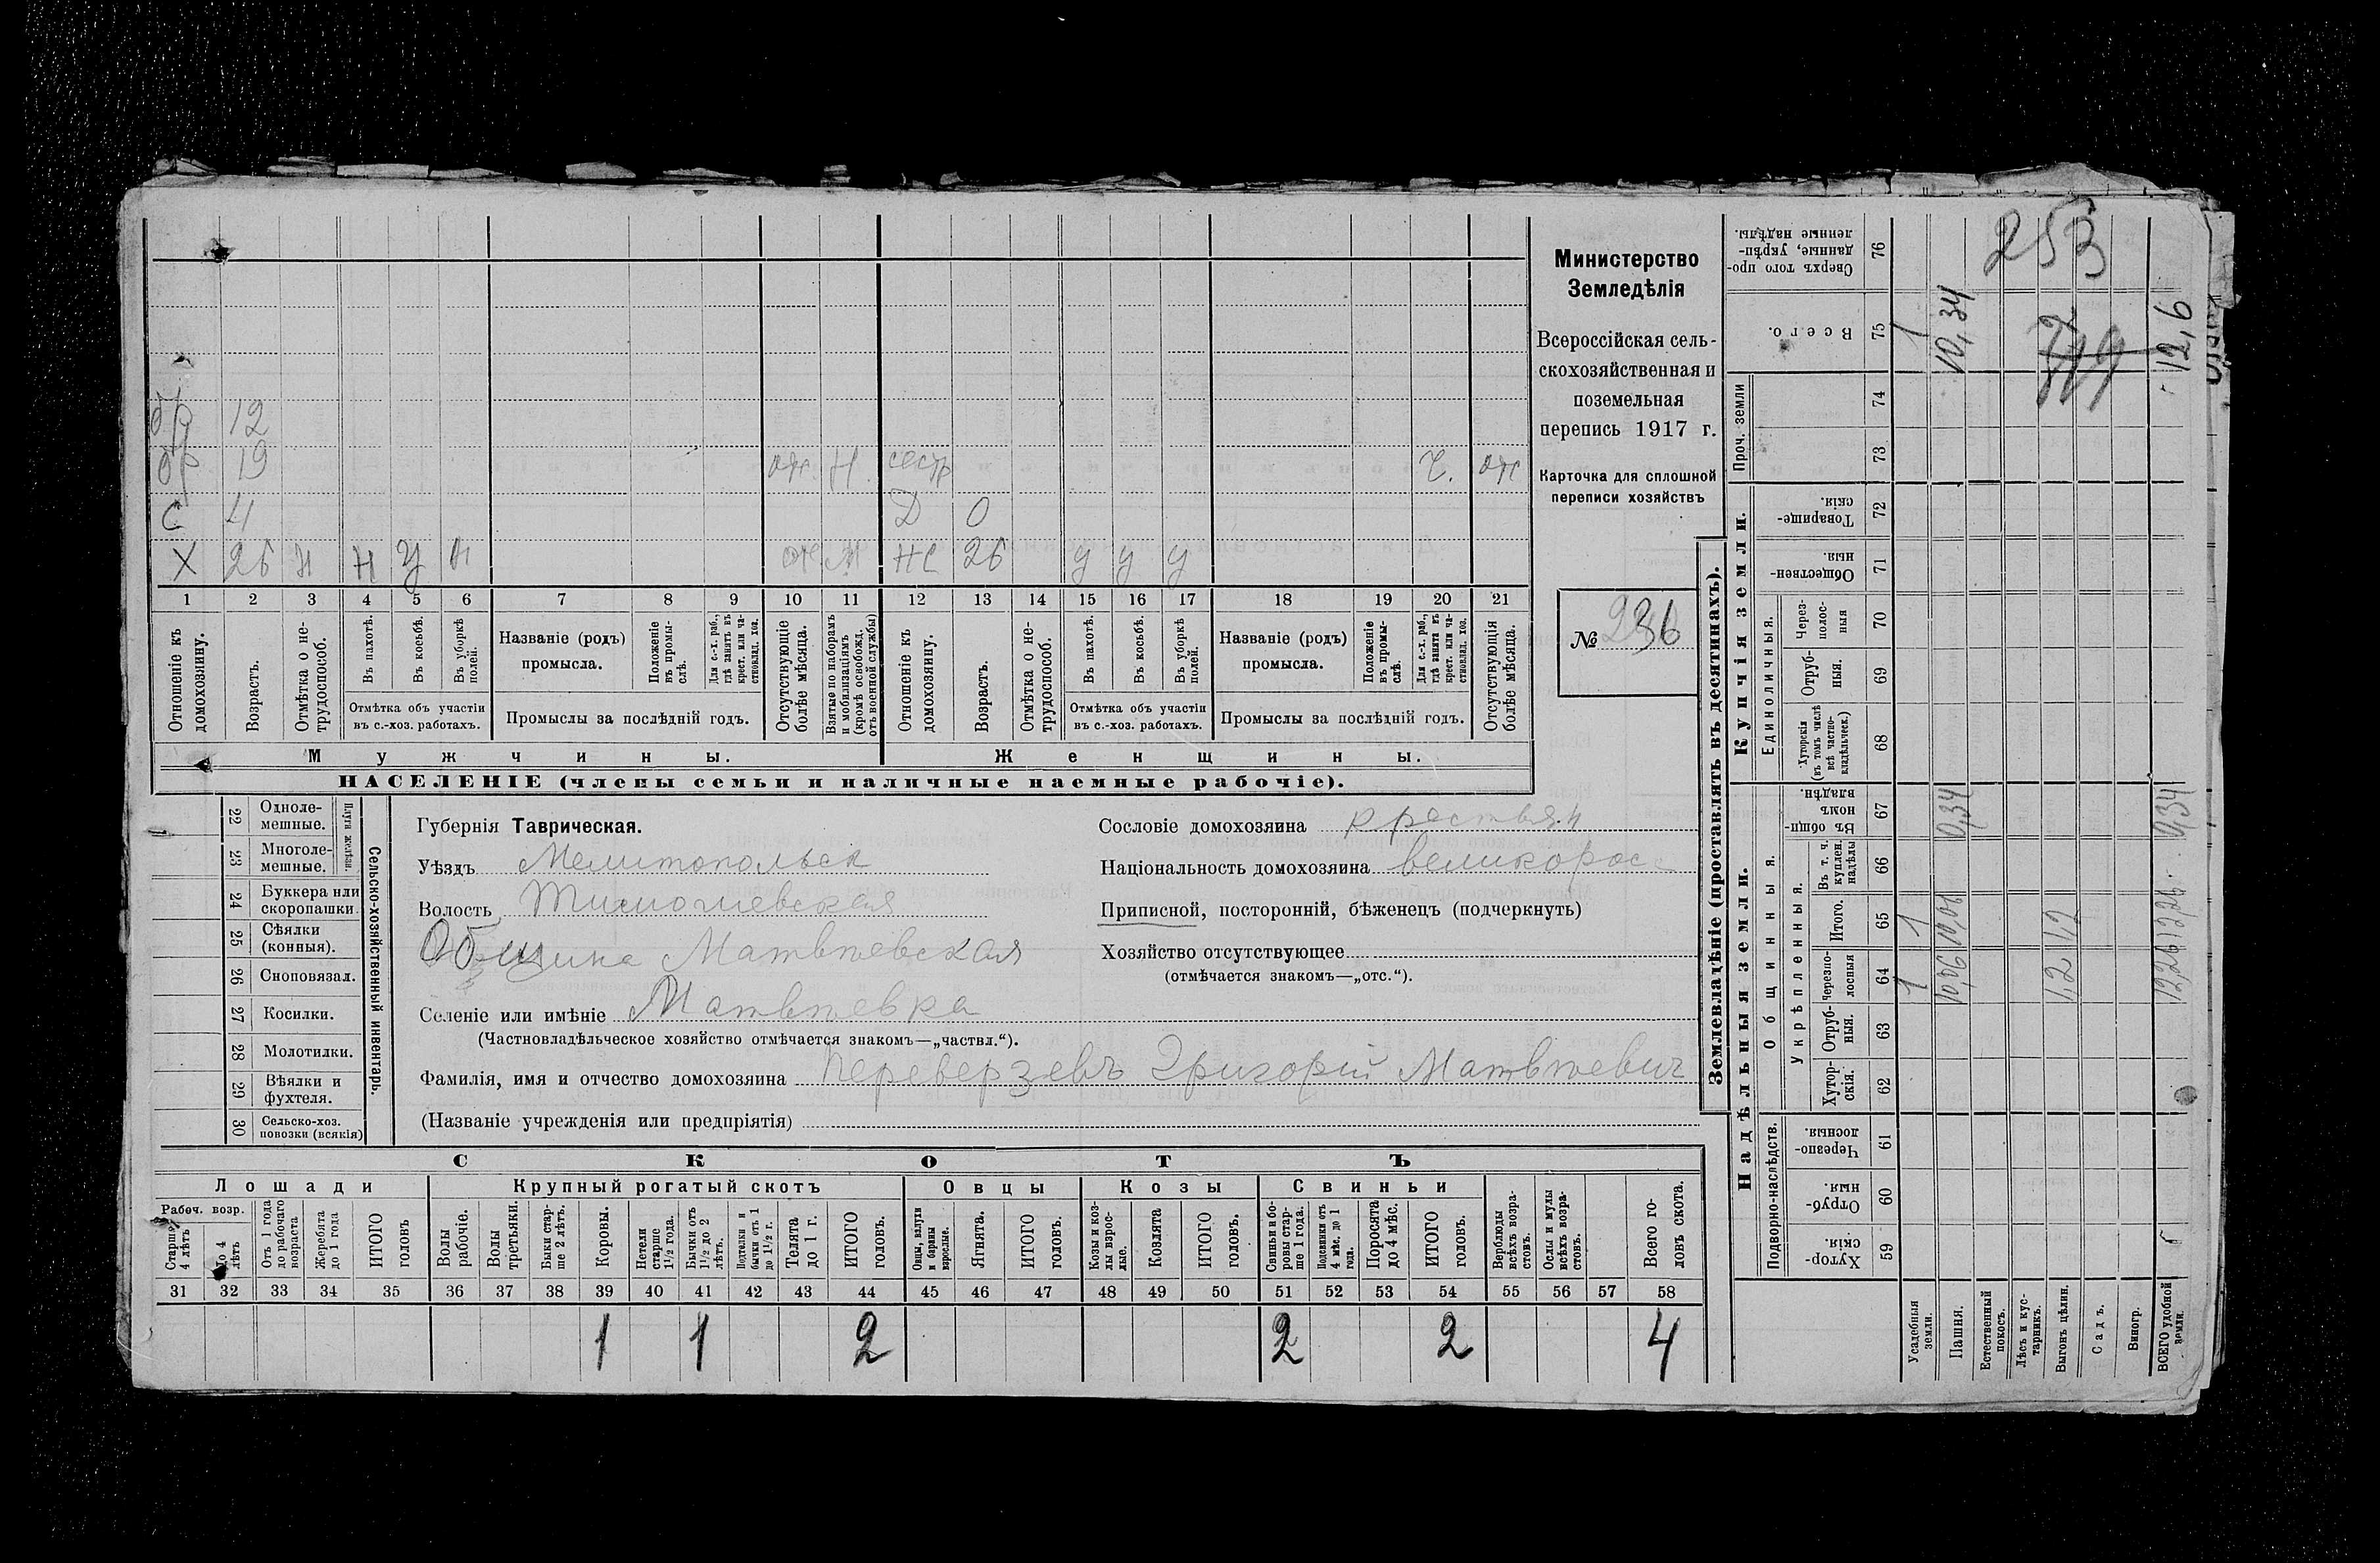 Министерство
Земледѣлія
Всероссійская сель-
скохозяйственная и
поземельная
перепись 1917 г.
Карточка для сплошной
переписи хозяйствъ
№ 236
бр 12
бр 19 отс. Н. сестр Ч. отс
С 4 Д 0
Х 26 Н Н У Н отс М НС 26 У У У
1 2 3 4 5 6 7 8 9 10 11 12 13 14 15 16 17 18 19 20 21
Отношеніе къ домохозяину.
Возрастъ.
Отмѣтка о не-трудоспособ.
Въ пахотѣ.
Въ косьбѣ.
Въ уборкѣ полей.
Отмѣтка объ участіи въ с.-хоз. работахъ.
Названіе (родъ) промысла.
Положеніе въ промы-слѣ.
Для с.-х. раб., гдѣ занятъ въ крест. или ча-стновлад. хоз.
Промыслы за послѣдній годъ.
Отсутствующіе болѣе мѣсяца.
Взятые по наборамъ и мобилизаціямъ (кромѣ освобожд. отъ военной службы)
Отношеніе къ домохозяину.
Возрастъ.
Отмѣтка о не-трудоспособ.
Въ пахотѣ.
Въ косьбѣ.
Въ уборкѣ полей.
Отмѣтка объ участіи въ с.-хоз. работахъ.
Названіе (родъ) промысла.
Положеніе въ промы-слѣ.
Для с.-х. раб., гдѣ занята въ крест. или ча-стновлад. хоз.
Промыслы за послѣдній годъ.
Отсутствующія болѣе мѣсяца.
Мужчины. Женщины.
НАСЕЛЕНІЕ (члены семьи и наличные наемные рабочіе).
22 Одноле-мешные.
23 Многоле-мешные.
Плуги желѣзн.
24 Буккера или скоропашки.
25 Сѣялки (конныя).
26 Сноповязал.
27 Косилки.
28 Молотилки.
29 Вѣялки и фухтеля.
30 Сельско-хоз. повозки (всякія)
Сельско-хозяйственный инвентарь.
Губернія Таврическая.
Уѣздъ Мелитопольск
Волость Тимошевская
Община Матвѣевская
Селеніе или имѣніе Матвѣевка
(Частновладѣльческое хозяйство отмѣчается знакомъ—„частвл.“).
Фамилія, имя и отчество домохозяина Переверзевъ Григорій Матвѣевич
(Названіе учрежденія или предпріятія)
Сословіе домохозяина крестьян
Національность домохозяина великоросс
Приписной, посторонній, бѣженецъ (подчеркнуть)
Хозяйство отсутствующее
(отмѣчается знакомъ—„отс.“).
СКОТЪ
Лошади Крупный рогатый скотъ Овцы Козы Свиньи
Рабоч. возр.
Старше 4 лѣтъ
До 4 лѣтъ
Отъ 1 года до рабочаго возраста
Жеребята до 1 года
ИТОГО головъ
Волы рабочіе.
Волы третьяки.
Быки стар-ше 2 лѣтъ.
Коровы.
Нетели старше 1½ года.
Бычки отъ 1½ до 2 лѣтъ.
Подтелки и бычки отъ 1 до 1½ г.
Телята до 1 г.
ИТОГО головъ.
Овцы, валухи и бараны взрослые.
Ягнята.
ИТОГО головъ.
Козы и коз-лы взрос-лые.
Козлята
ИТОГО головъ.
Свиньи и бо-ровы стар-ше 1 года.
Подсвинки отъ 4 мѣс. до 1 года.
Поросята до 4 мѣс.
ИТОГО головъ.
Верблюды всѣхъ возра-стовъ.
Ослы и мулы всѣхъ возра-стовъ.
Всего го-ловъ скота.
31 32 33 34 35 36 37 38 39 40 41 42 43 44 45 46 47 48 49 50 51 52 53 54 55 56 57 58
1 1 2 2 2 4
Землевладѣніе (проставлять въ десятинахъ).
Надѣльныя земли.
Купчія земли.
Проч. земли
Подворно-наслѣдств.
Общинныя.
Укрѣпленныя.
Единоличныя.
Хутор-скія. 59
Отруб-ныя. 60
Черезпо-лосныя. 61
Хутор-скія. 62
Отруб-ныя. 63
Черезпо-лосныя 64
Итого. 65
Въ т. ч. куплен. надѣлы 66
Въ общи-номъ владѣн. 67
Хуторскія (въ томъ числѣ всѣ частно-владѣльческ.) 68
Отруб-ныя. 69
Через-полос-ныя 70
Обществен-ныя. 71
Товарище-скія. 72
73
74
Всего. 75
Сверхъ того про-данные, укрѣп-ленные надѣлы. 76
Усадебныя земли. 1 1 1
Пашня. 10,06 10,06 0,34 10,34
Естественный покосъ.
Лѣсъ и кус-тарникъ.
Выгонъ цѣлин. 1,2 1,2
Садъ.
Виногр.
ВСЕГО удобной земли. 12,26 12,26 0,34 12,6
253